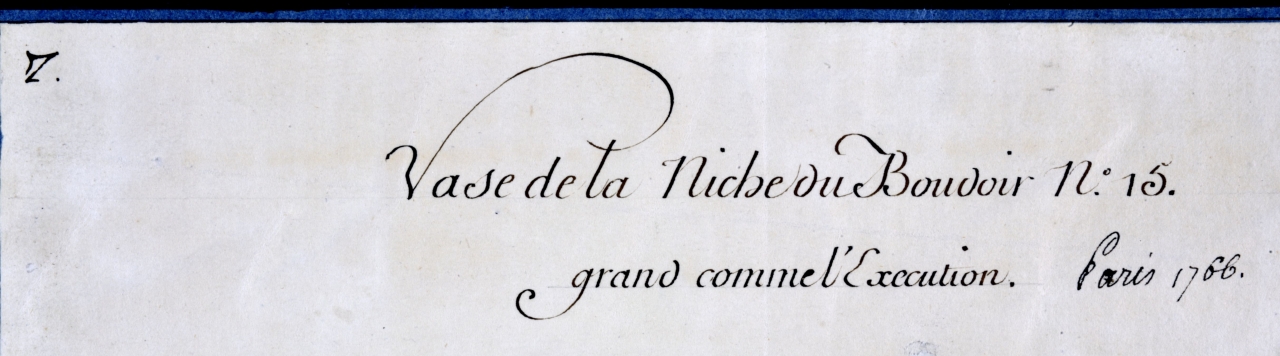 7.
Vase de la Niche du Boudoir N.° 15.
grand comme l'Execution. Paris 1766.